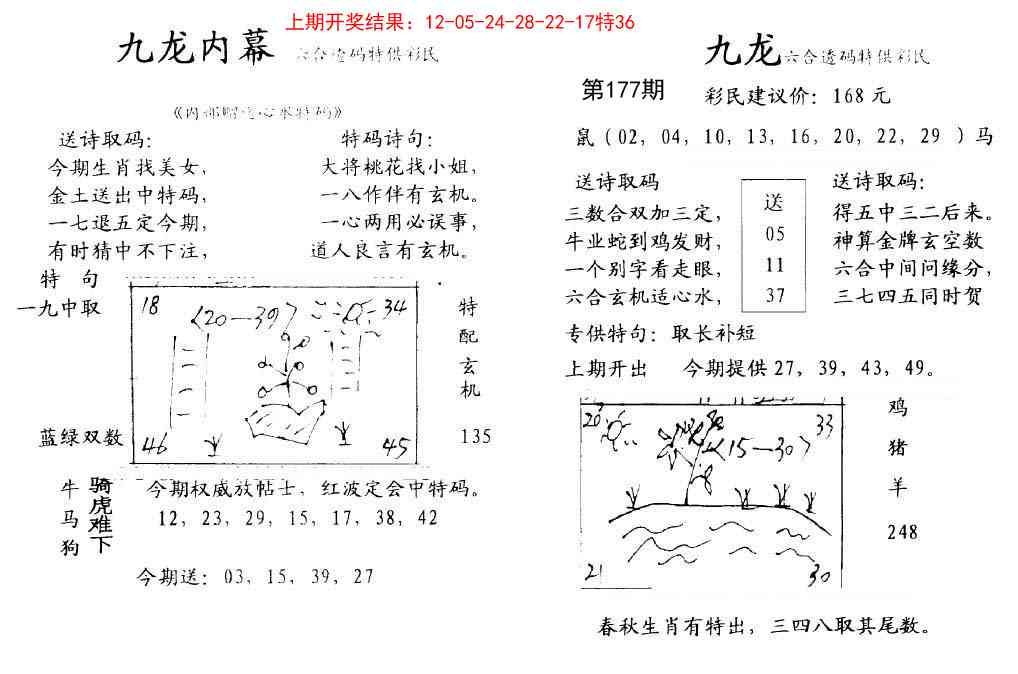 上期开奖结果：12-05-24-28-22-17特36
九龙内幕 六合透码特供彩民
《内部赠送心水特码》
送诗取码：
今期生肖找美女，
金土送出中特码，
一七退五定今期，
有时猜中不下注，
特码诗句：
大将桃花找小姐，
一八作伴有玄机。
一心两用必误事，
道人良言有玄机。
特 句
一九中取
蓝绿双数
18
〈20—39〉
34
46
45
特配玄机
135
牛马狗
骑虎难下
今期权威放帖士，红波定会中特码。
12，23，29，15，17，38，42
今期送：03，15，39，27
九龙六合透码特供彩民
第177期
彩民建议价：168元
鼠（02，04，10，13，16，20，22，29 ）马
送诗取码
三数合双加三定，
牛业蛇到鸡发财，
一个别字看走眼，
六合玄机适心水，
送
05
11
37
送诗取码：
得五中三二后来。
神算金牌玄空数
六合中间问缘分，
三七四五同时贺
专供特句：取长补短
上期开出 今期提供27，39，43，49。
20
〈15—30〉
33
21
30
鸡
猪
羊
248
春秋生肖有特出，三四八取其尾数。